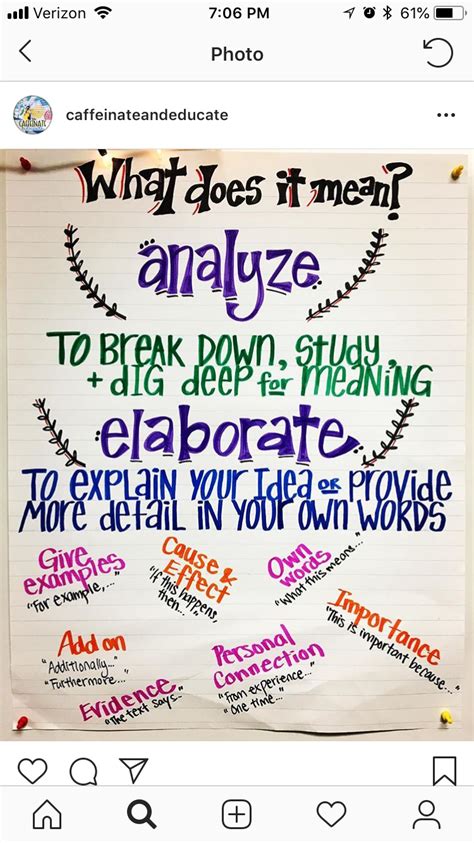 Verizon 7:06 PM 61%
Photo
caffeinateandeducate
What does it mean?
analyze
TO BREAK DOWN, STUDY,
+ DIG DEEP for MEANING
elaborate
TO EXPLAIN YOUR IDEA OR PROVIDE
MORE DETAIL IN YOUR OWN WORDS
Give
examples
"For example,..."
Cause &
Effect
"If this happens,
then..."
Own
words
"What this means..."
Importance
"This is important because..."
Add on
"Additionally...
"Furthermore..."
Evidence
"The text says..."
Personal
Connection
"From experience..."
"One time..."